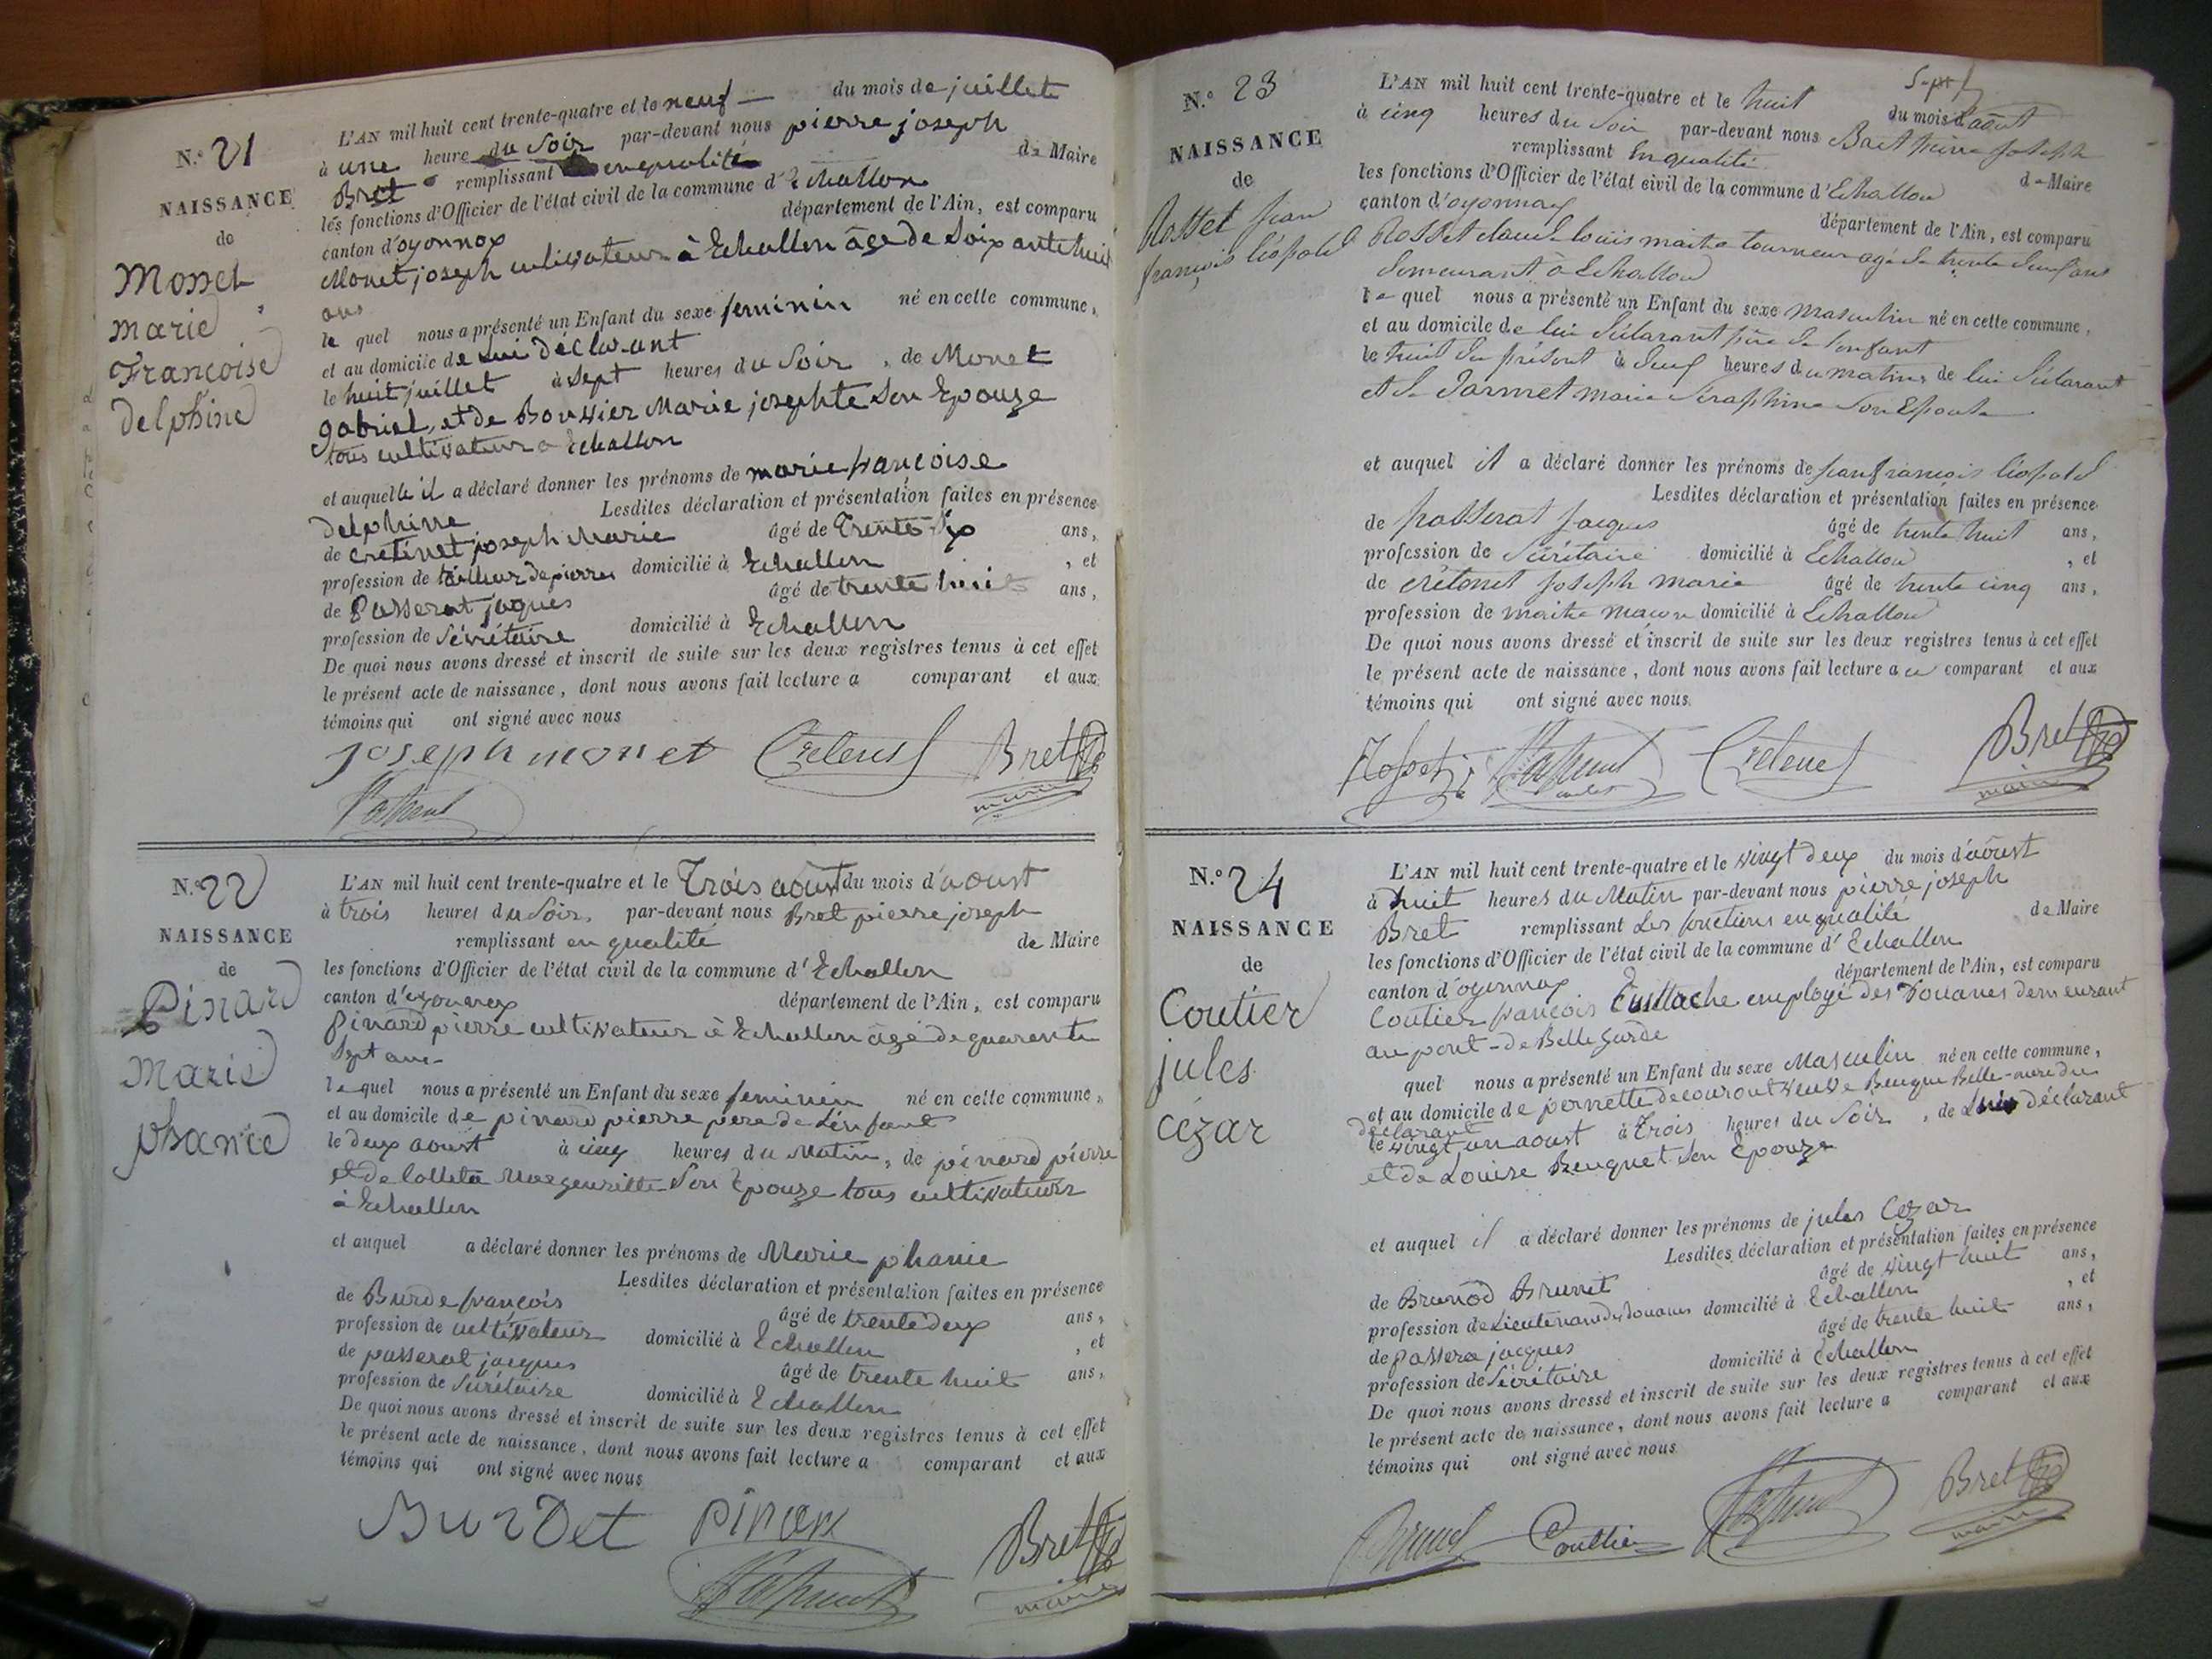 N.° 21
NAISSANCE
de
Monet
marie
Françoise
delphine
L'AN mil huit cent trente-quatre et le neuf — du mois de juillet
à une heure du Soir par-devant nous pierre joseph
Bret remplissant en qualité de Maire
les fonctions d'Officier de l'état civil de la commune d'Echallon
canton d'oyonnax département de l'Ain, est comparu
Monet joseph cultivateur à Echallon âgé de Soixante huit
ans
le quel nous a présenté un Enfant du sexe feminin né en cette commune,
et au domicile de lui déclarant
le huit juillet à sept heures du Soir, de Monet
gabriel, et de Bouvier Marie josephte Son Epouze
tous cultivateurs a Echallon
et auquelle il a déclaré donner les prénoms de marie françoise
delphine Lesdites déclaration et présentation faites en présence
de cretinet joseph Marie âgé de Trente Six ans,
profession de tailleur de pierres domicilié à Echallon, et
de Passerat jaques âgé de trente huit ans,
profession de Sécrétaire domicilié à Echallon
De quoi nous avons dressé et inscrit de suite sur les deux registres tenus à cet effet
le présent acte de naissance, dont nous avons fait lecture a comparant et aux
témoins qui ont signé avec nous
joseph monet Bret
maire
N.° 22
NAISSANCE
de
Pinard
Marie
phanie
L'AN mil huit cent trente-quatre et le Trois aoust du mois d'aoust
à trois heures du Soir, par-devant nous Bret pierre joseph
remplissant en qualité de Maire
les fonctions d'Officier de l'état civil de la commune d'Echallon
canton d'oyonnax département de l'Ain, est comparu
Pinard pierre cultivateur à Echallon âgé de quarente
Sept ans
le quel nous a présenté un Enfant du sexe feminin né en cette commune,
et au domicile de pinard pierre pere de Lenfant
le deux aoust à cinq heures du Matin, de pinard pierre
et de Colleta Margueritte Son Epouze tous cultivateurs
à Echallon
et auquel a déclaré donner les prénoms de Marie phanie
Lesdites déclaration et présentation faites en présence
de Burde françois âgé de trente deux ans,
profession de cultivateur domicilié à Echallon, et
de passerat jacques âgé de trente huit ans,
profession de Sécrétaire domicilié à Echallon
De quoi nous avons dressé et inscrit de suite sur les deux registres tenus à cet effet
le présent acte de naissance, dont nous avons fait lecture a comparant et aux
témoins qui ont signé avec nous
Burdet pinard Bret
maire
N.° 23
NAISSANCE
de
Rosset jean
françois léopold
L'AN mil huit cent trente-quatre et le huit du mois d'août
à cinq heures du Soir par-devant nous Bret pierre joseph
remplissant En qualité de Maire
les fonctions d'Officier de l'état civil de la commune d'Echallon
canton d'oyonnax département de l'Ain, est comparu
Rosset claude louis maitre tourneur agé de trente deux ans
demeurant à Echallon
le quel nous a présenté un Enfant du sexe masculin né en cette commune,
et au domicile de lui Déclarant père de l'enfant
le huit du présent à neuf heures du matin, de lui Déclarant
et de Jarmet marie Séraphine Son Epouse
et auquel il a déclaré donner les prénoms de jean françois léopold
Lesdites déclaration et présentation faites en présence
de passerat jacques âgé de trente huit ans,
profession de Sécrétaire domicilié à Echallon, et
de crétenet joseph marie âgé de trente cinq ans,
profession de maitre maçon domicilié à Echallon
De quoi nous avons dressé et inscrit de suite sur les deux registres tenus à cet effet
le présent acte de naissance, dont nous avons fait lecture a ce comparant et aux
témoins qui ont signé avec nous.
Rosset Bret
maire
N.° 24
NAISSANCE
de
Coutier
jules
cézar
L'AN mil huit cent trente-quatre et le vingt deux du mois d'aoust
à huit heures du Matin par-devant nous pierre joseph
Bret remplissant Les fonctions en qualité de Maire
les fonctions d'Officier de l'état civil de la commune d'Echallon
canton d'oyonnax département de l'Ain, est comparu
Coutier françois Eustache employé des Douanes demeurant
au pont-de Belle garde
quel nous a présenté un Enfant du sexe Masculin né en cette commune,
et au domicile de pernette veuve Belle-mere du
déclarant
le vingt un aoust à Trois heures du Soir, de Lui déclarant
et de Louise Son Epouze
et auquel il a déclaré donner les prénoms de jules Cezar
Lesdites déclaration et présentation faites en présence
de Brunod Brunet âgé de vingt huit ans,
profession de Lieutenant des Douanes domicilié à Echallon, et
de passera jacques âgé de trente huit ans,
profession de Sécrétaire domicilié à Echallon
De quoi nous avons dressé et inscrit de suite sur les deux registres tenus à cet effet
le présent acte de naissance, dont nous avons fait lecture a comparant et aux
témoins qui ont signé avec nous
Coutier Bret
maire